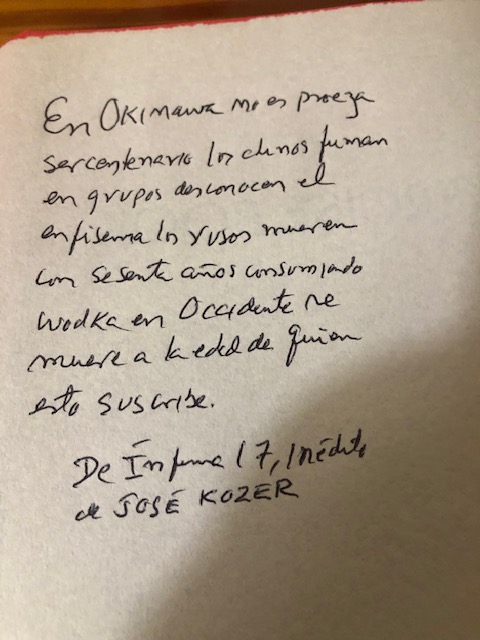 En Okinawa no es proeza
ser centenario los chinos fuman
en grupos desconocen el
enfisema los rusos mueren
con sesenta años consumiendo
wodka en Occidente se
muere a la edad de quien
esto suscribe.
De Ínfima 17, inédito
de JOSÉ KOZER